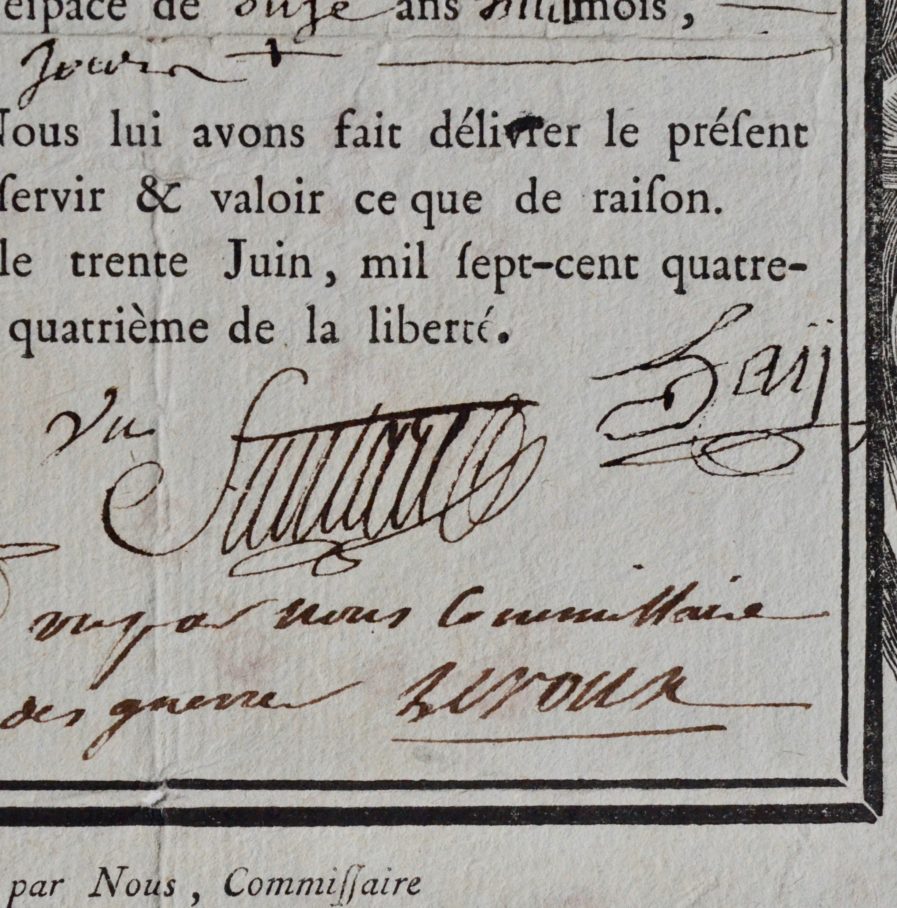 eſpace de onze ans huit mois,
jours
Nous lui avons fait délivrer le préſent
ſervir & valoir ce que de raiſon.
le trente Juin, mil ſept-cent quatre-
quatrième de la liberté.
Vu
vu par nous Commissaire
des guerre Leroux
par Nous, Commiſſaire